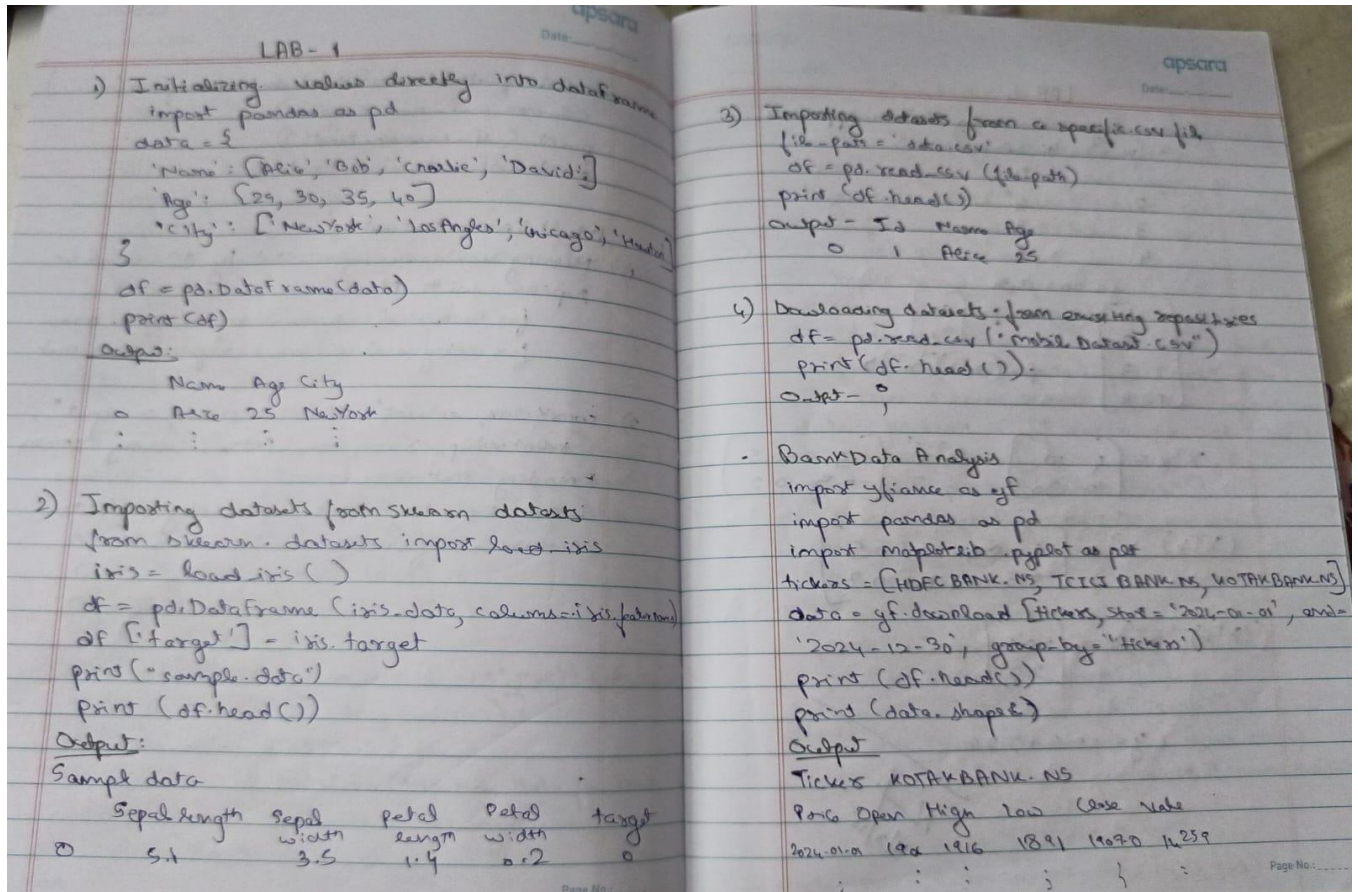 apsara
Date:
LAB - 1
1) Initializing values directly into dataframe
import pandas as pd
data = {
'Name' : ['Alice', 'Bob', 'Charlie', 'David']
'Age' : [25, 30, 35, 40]
'City' : ['NewYork', 'Los Angles', 'Chicago',
}
df = pd.DataFrame(data)
print(df)
Output:
Name Age City
0 Alice 25 NewYork
: : : :
2) Importing datasets from sklearn datasets
from sklearn.datasets import load_iris
iris = load_iris()
df = pd.DataFrame(iris.data, columns=iris.
df['target'] = iris.target
print("sample data")
print(df.head())
Output:
Sample data
Sepal length sepal width petal length petal width target
0 5.1 3.5 1.4 0.2 0
Page No.:
apsara
Date:
3) Importing datasets from a specific csv file
file_path = 'data.csv'
df = pd.read_csv(file_path)
print(df.head())
Output - Id Name Age
0 1 Alice 25
4) Dowloading datasets from existing
df = pd.read_csv("mobile Dataset.csv")
print(df.head()).
Output -
. Bank Data Analysis
import yfiance as yf
import pandas as pd
import matplotlib.pyplot as plt
tickers = [HDFC BANK.NS, ICICI BANK.NS, KOTAKBANK.NS]
data = yf.download [tickers, start = '2024-01-01', end =
'2024-12-30', group_by = 'tickers')
print(df.head())
print(data.shape)
Output
Ticker KOTAKBANK.NS
Price Open High Low Close
2024-01-01 1916 1891
Page No.: